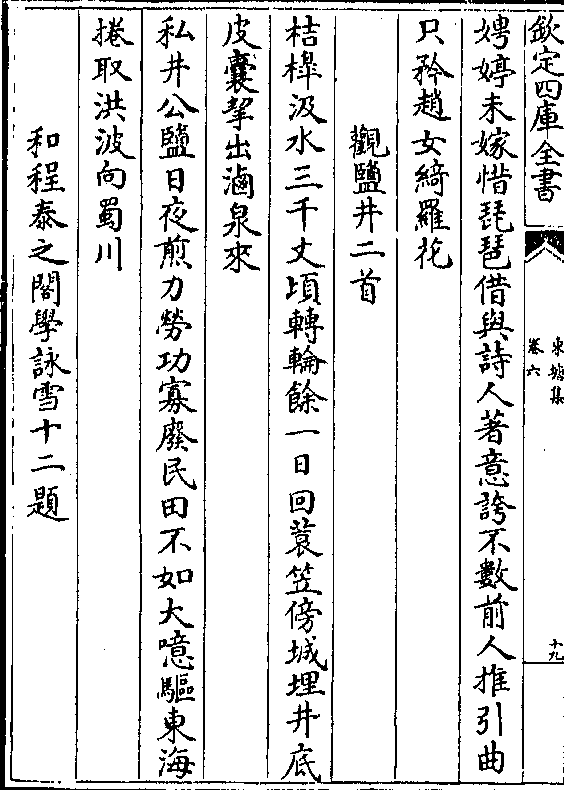 欽定四庫全書
東塘集
卷六
十九
娉婷未嫁惜琵琶借與詩人著意誇不數前人推引曲
只矜趙女綺羅花
觀鹽井二首
桔槹汲水三千丈頃轉輪餘一日回蓑笠傍城埋井底
皮囊挈出滷泉來
私井公鹽日夜煎力勞功寡廢民田不如大噫驅東海
捲取洪波向蜀川
和程泰之閣學詠雪十二題